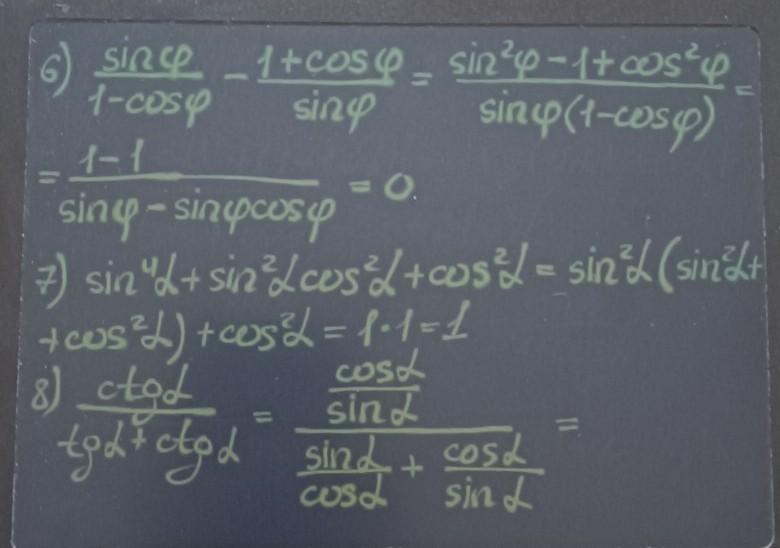 6) sinφ/(1-cosφ) - (1+cosφ)/sinφ = (sin²φ-1+cos²φ)/(sinφ(1-cosφ)) =
= (1-1)/(sinφ-sinφcosφ) = 0
7) sin⁴α+sin²αcos²α+cos²α = sin²α(sin²α+
+cos²α)+cos²α = 1·1=1
8) ctgα/(tgα+ctgα) = (cosα/sinα)/(sinα/cosα + cosα/sinα) =